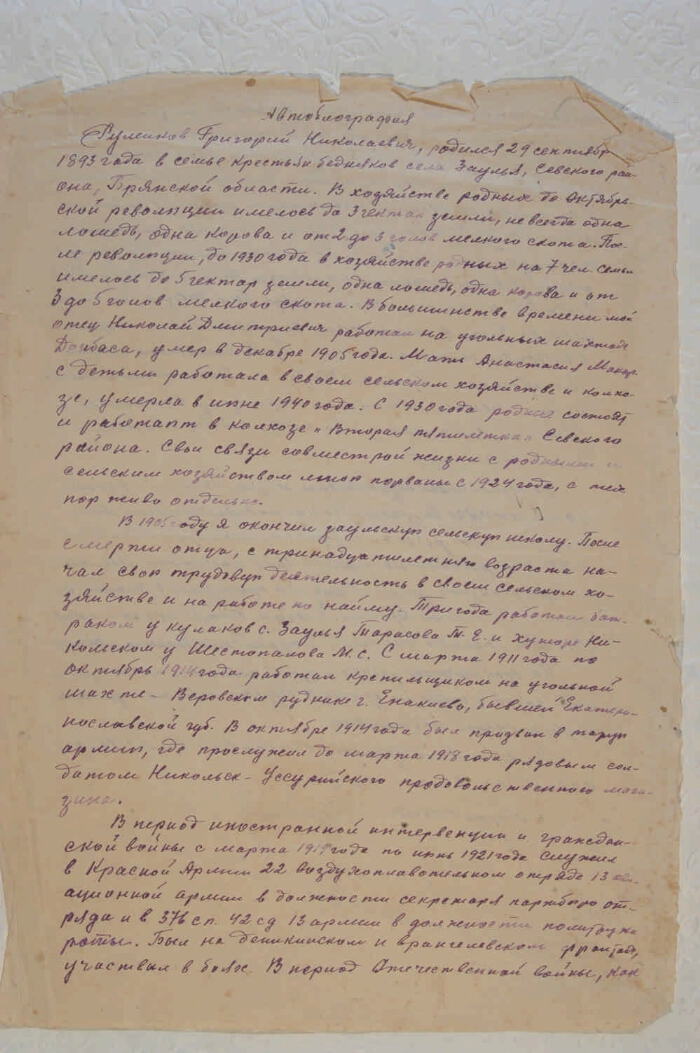 Автобиография
Руликов Григорий Николаевич, родился 29 сентября
1893 года в семье крестьян-бедняков села Заулья, Севского рай-
она, Брянской области. В хозяйстве родных до Октябрь-
ской революции имелось до 3 гектар земли, не всегда одна
лошадь, одна корова и от 2 до 3 голов мелкого скота. Пос-
ле революции, до 1930 года в хозяйстве родных на 7 чел. семьи
имелось до 5 гектар земли, одна лошадь, одна корова и от
3 до 5 голов мелкого скота. В большинстве времени мой
отец Николай Дмитриевич работал на угольных шахтах
Донбаса, умер в декабре 1905 года. Мать Анастасия
с детьми работала в своем сельском хозяйстве и колхо-
зе, умерла в июне 1940 года. С 1930 года родные состоят
и работают в колхозе "Вторая пятилетка" Севского
района. Свои связи совместной жизни с родными и
сельским хозяйством мною порваны с 1924 года, с тех
пор живу отдельно.
В 1905 году я окончил заульскую сельскую школу. После
смерти отца, с тринадцатилетнего возраста на-
чал свою трудовую деятельность в своем сельском хо-
зяйстве и на работе по найму. Три года работал бат-
раком у кулаков с. Заулья Тарасова Т. Е. и хуторе Ни-
кольском у Шестопалова М. С. С марта 1911 года по
октябрь 1914 года работал крепильщиком на угольной
шахте - Веровском руднике г. Енакиево, бывшей Екатери-
нославской губ. В октябре 1914 года был призван в старую
армию, где прослужил до марта 1918 года рядовым сол-
датом Никольск-Уссурийского продовольственного мага-
зина.
В период иностранной интервенции и граждан-
ской войны с марта 1919 года по июнь 1921 года служил
в Красной Армии 22 воздухоплавательном отряде 13 ави-
ационной армии в должности секретаря партбюро от-
ряда и в 376 сп. 42 сд 13 армии в должности политрука
роты. Был на деникинском и врангелевском фронтах,
участвовал в боях. В период Отечественной войны, как